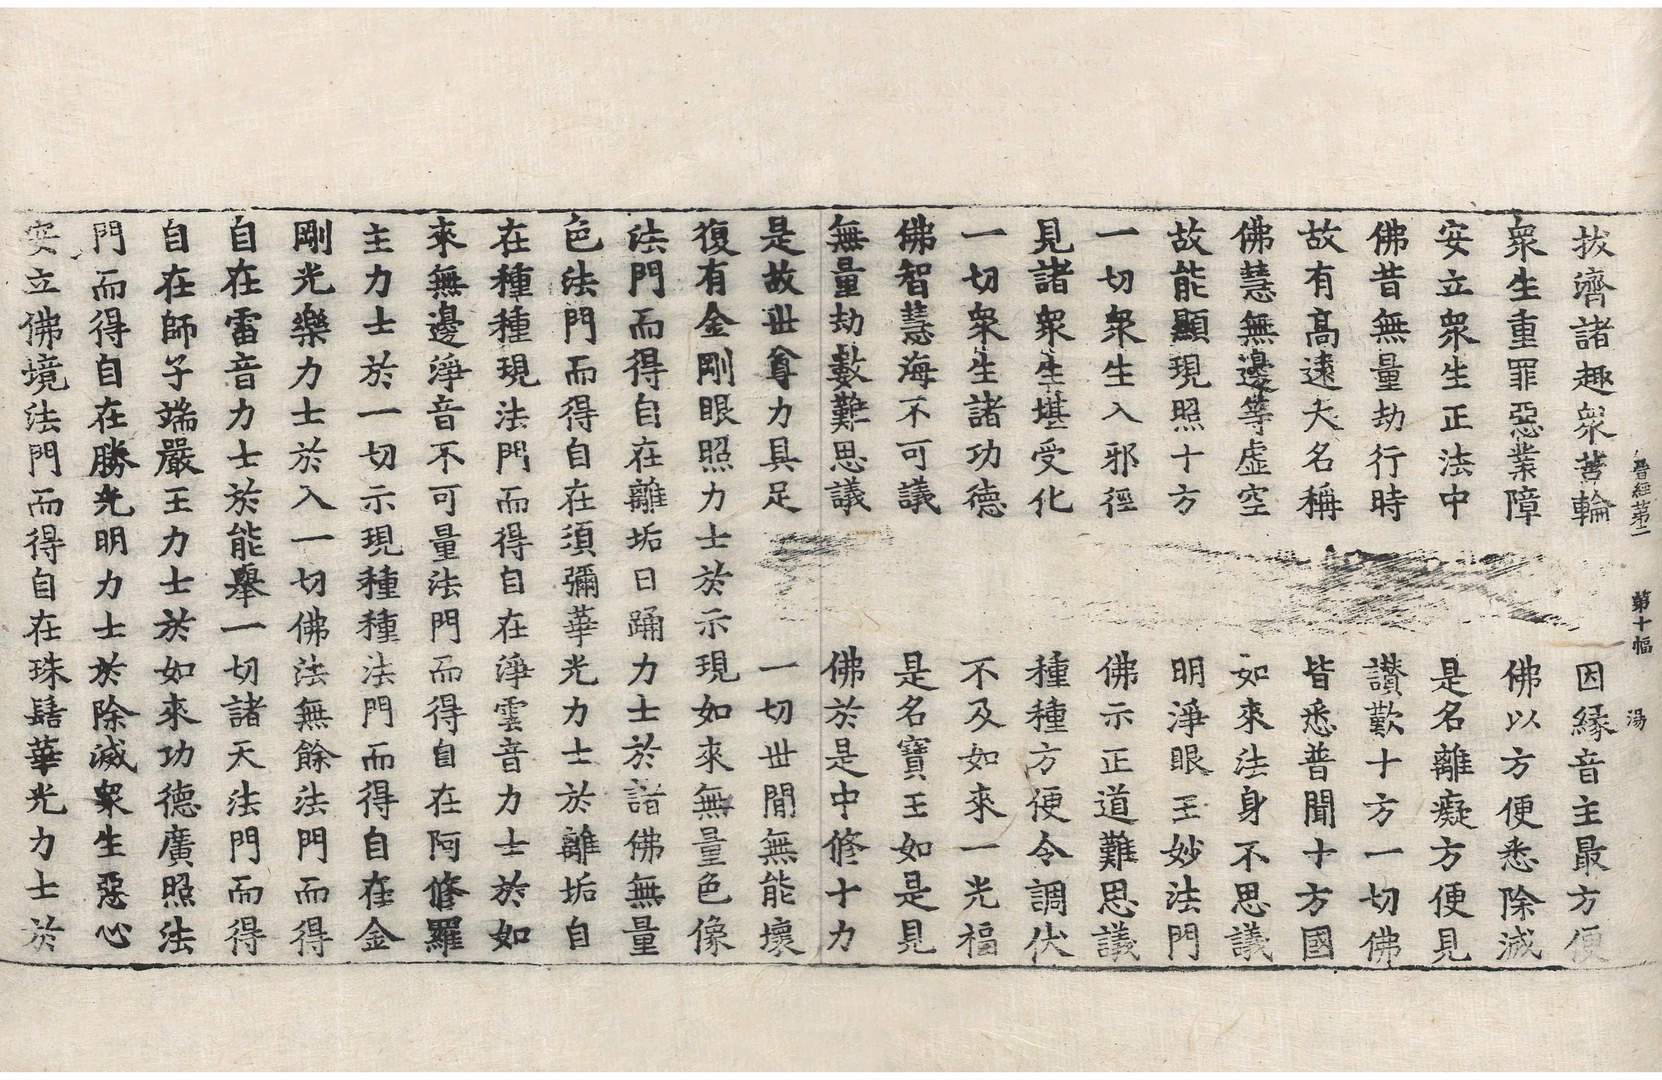 晉經第二　第十幅　湯
拔濟諸趣衆苦輪　因緣音主最方便
衆生重罪惡業障　佛以方便悉除滅
安立衆生正法中　是名離癡方便見
佛昔無量劫行時　讃歎十方一切佛
故有高遠大名稱　皆悉普聞十方國
佛慧無邊等虛空　如來法身不思議
故能顯現照十方　明淨眼王妙法門
一切衆生入邪徑　佛示正道難思議
見諸衆生堪受化　種種方便令調伏
一切衆生諸功德　不及如來一光福
佛智慧海不可議　是名寶王如是見
無量劫數難思議　佛於是中修十力
是故世尊力具足　一切世閒無能壞
復有金剛眼照力士於示現如來無量色像
法門而得自在離垢日踊力士於諸佛無量
色法門而得自在須彌華光力士於離垢自
在種種現法門而得自在淨雲音力士於如
來無邊淨音不可量法門而得自在阿修羅
主力士於一切示現種種法門而得自在金
剛光樂力士於入一切佛法無餘法門而得
自在雷音力士於能擧一切諸天法門而得
自在師子端嚴王力士於如來功德廣照法
門而得自在勝光明力士於除滅衆生惡心
安立佛境法門而得自在珠髻華光力士於